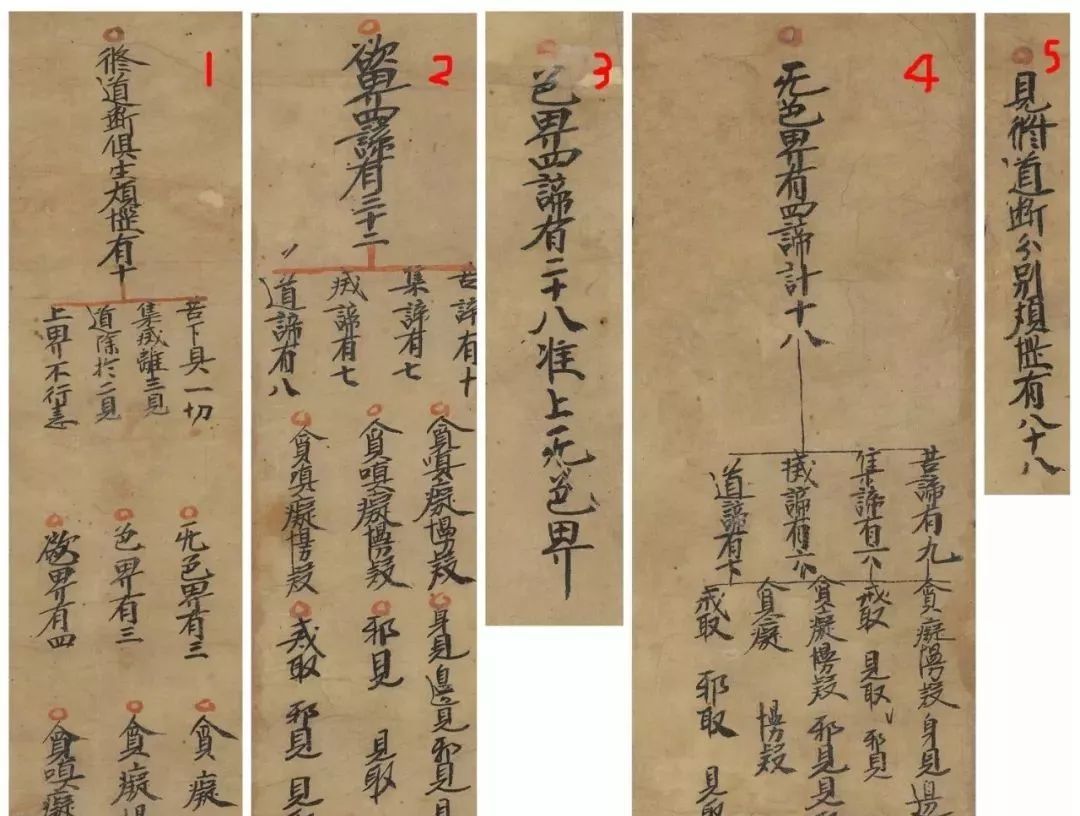 1
修道断俱生煩惱有十
苦下具一切
集滅離三見
道除於二見
上界不行恚
无色界有三
色界有三
欲界有四
貪癡
貪癡
貪嗔癡
2
欲界四諦有三十二
苦諦有十
集諦有七
滅諦有七
道諦有八
貪嗔癡慢疑
貪嗔癡慢疑
貪嗔癡慢疑
身見邊見邪見見
邪見 見取
戒取 邪見 見
3
色界四諦有二十八准上无色界
4
无色界有四諦計十八
苦諦有九
集諦有六
滅諦有六
道諦有
貪癡慢疑身見邊
戒取 見取 邪見
貪癡慢疑邪見見
貪癡 慢疑
戒取 邪取 見取
5
見修道断分別煩惱有八十八